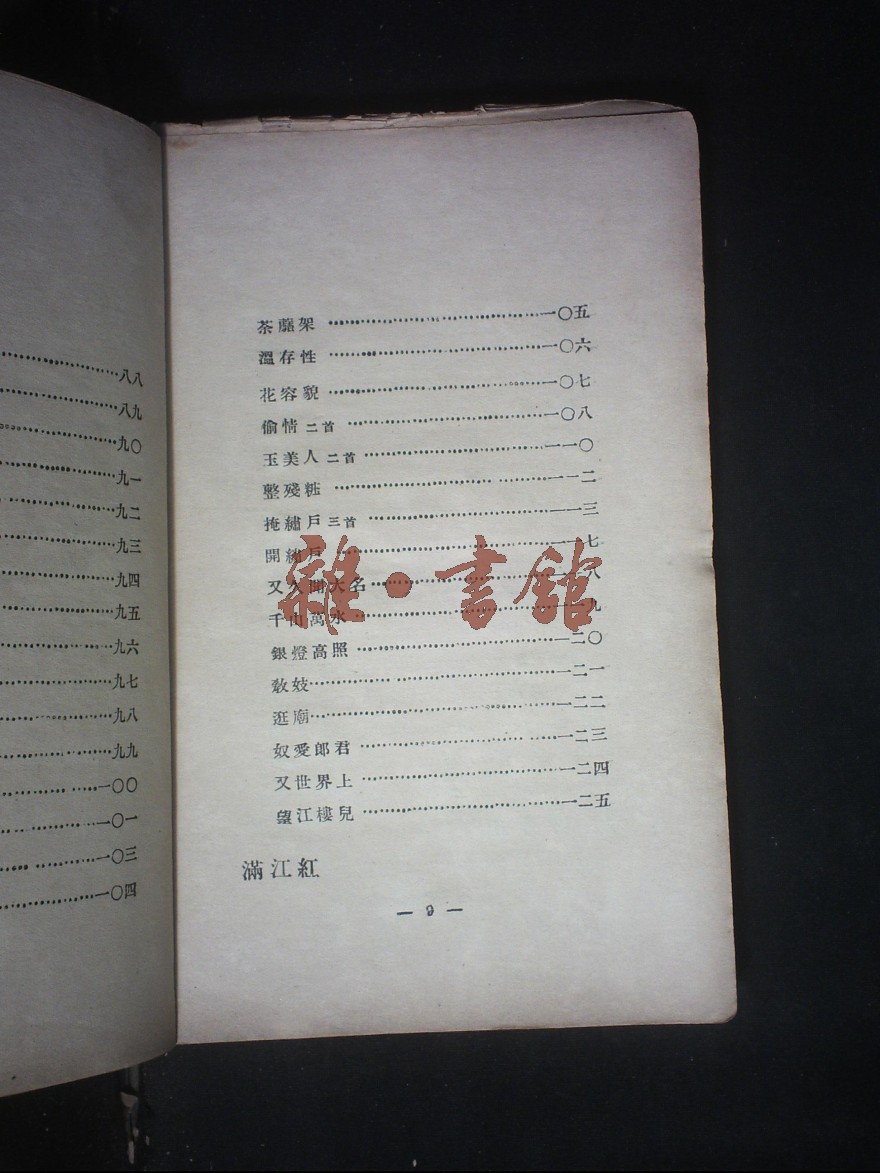 八八
八九
九〇
九一
九二
九三
九四
九五
九六
九七
九八
九九
一〇〇
一〇一
一〇三
一〇四
荼蘼架 一〇五
溫存性 一〇六
花容貌 一〇七
偷情 二首 一〇八
玉美人 二首 一一〇
整殘粧 一一二
掩繡戶 三首 一一三
開繡戶 一一七
又久聞大名 一一八
千山萬水 一一九
銀燈高照 一二〇
敎妓 一二一
逛廟 一二二
奴愛郎君 一二三
又世界上 一二四
望江樓兒 一二五
滿江紅
— 9 —
雜·書館